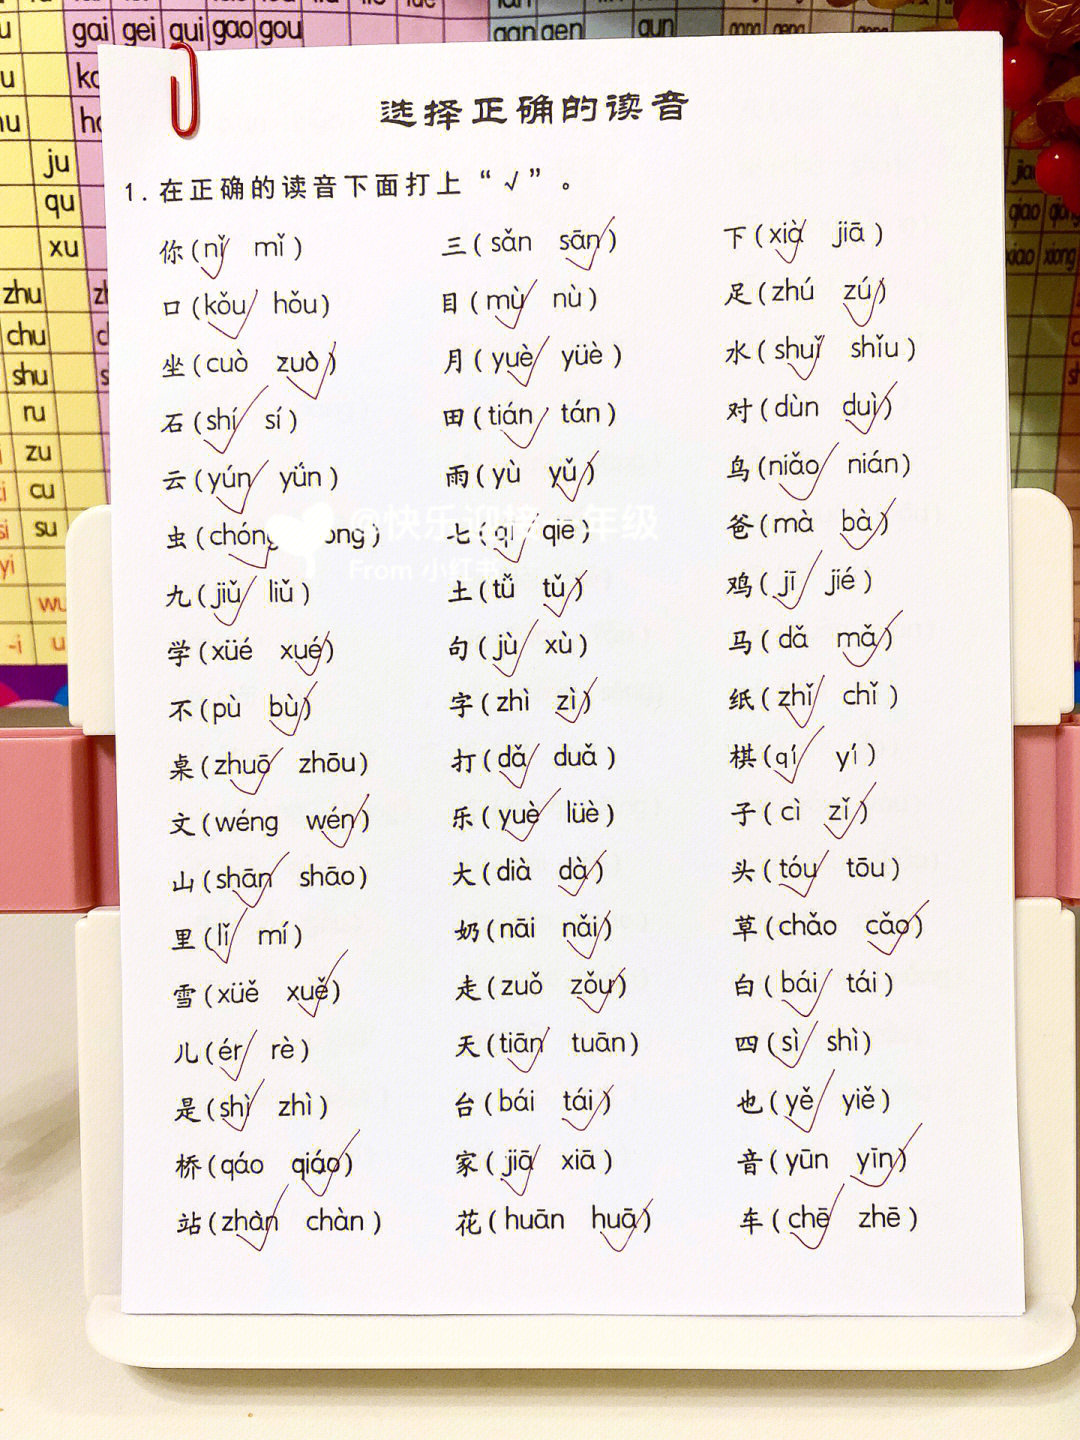 gai gei gui gao gou
gan gen gun gang geng gong
ju
qu
xu
zhu
chu
shu
ru
zu
cu
su
yi
wu
-i u
qiao qiong
xiao xiong
选择正确的读音
1.在正确的读音下面打上“√”。
你(nǐ mǐ) 三(sǎn sān) 下(xià jiā)
口(kǒu hǒu) 目(mù nù) 足(zhú zú)
坐(cuò zuò) 月(yuè yüè) 水(shuǐ shǐu)
石(shí sí) 田(tián tán) 对(dùn duì)
云(yún yǘn) 雨(yù yǔ) 鸟(niǎo nián)
虫(chóng ong) 七(qī qiē) 爸(mà bà)
九(jiǔ liǔ) 土(tǚ tǔ) 鸡(jī jié)
学(xüé xué) 句(jù xù) 马(dǎ mǎ)
不(pù bù) 字(zhì zì) 纸(zhǐ chǐ)
桌(zhuō zhōu) 打(dǎ duǎ) 棋(qí yí)
文(wéng wén) 乐(yuè lüè) 子(cì zǐ)
山(shān shāo) 大(dià dà) 头(tóu tōu)
里(lǐ mí) 奶(nāi nǎi) 草(chǎo cǎo)
雪(xüě xuě) 走(zuǒ zǒu) 白(bái tái)
儿(ér rè) 天(tiān tuān) 四(sì shì)
是(shì zhì) 台(bái tái) 也(yě yiě)
桥(qáo qiáo) 家(jiā xiā) 音(yūn yīn)
站(zhàn chàn) 花(huān huā) 车(chē zhē)
@快乐迎接一年级
From 小红书